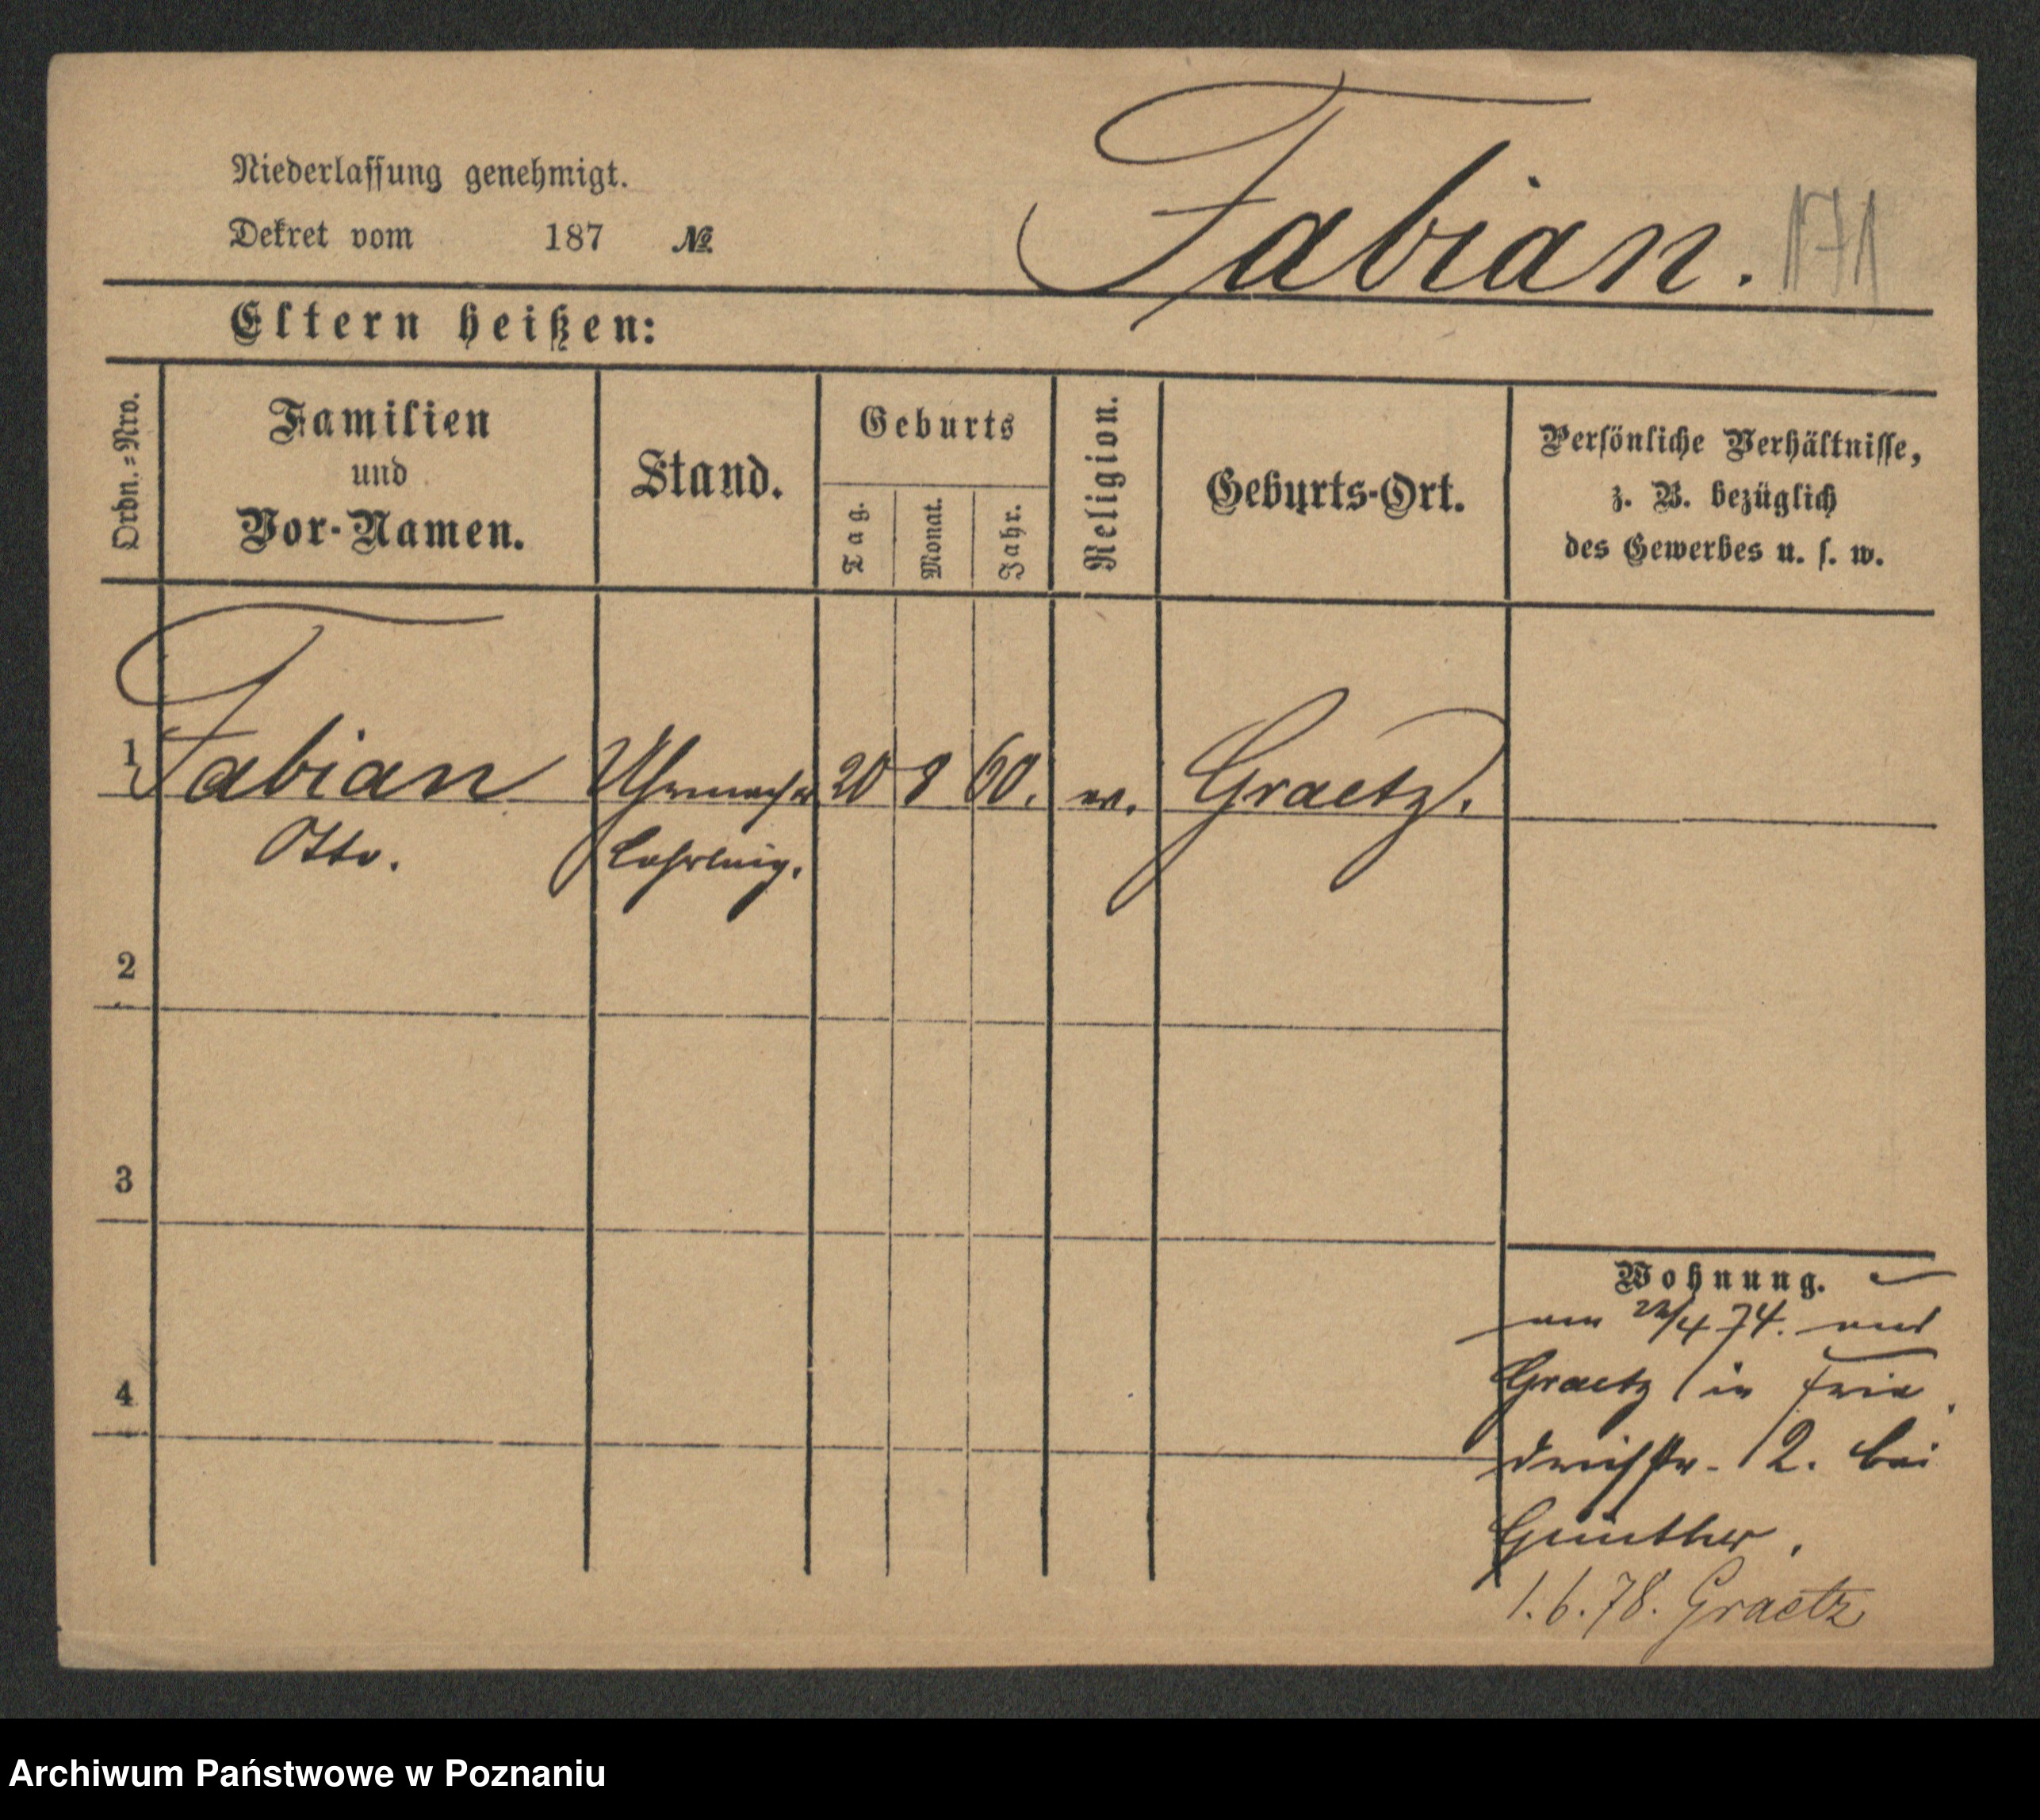 Niederlassung genehmigt.
Dekret vom 187 №
Fabian. 171
Eltern heißen:
Ordn.=Nro.
Familien
und
Vor-Namen.
Stand.
Geburts
Tag.
Monat.
Jahr.
Religion.
Geburts-Ort.
Persönliche Verhältnisse,
z. B. bezüglich
des Gewerbes u. s. w.
1 Fabian Uhrmacher 20 8 60. ev. Graetz.
Otto. Lehrling.
2
3
4
Wohnung.
22/4 74. aus
Graetz in Frie
drichstr. 2. bei
Günther.
1.6.78. Graetz
Archiwum Państwowe w Poznaniu